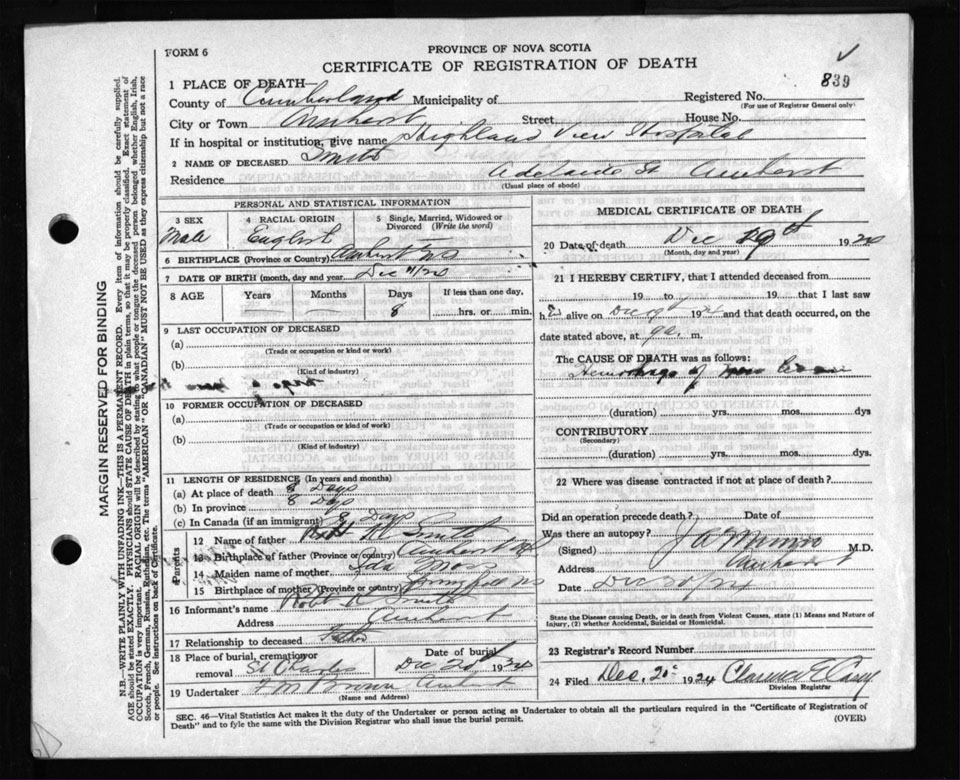 FORM 6
PROVINCE OF NOVA SCOTIA
CERTIFICATE OF REGISTRATION OF DEATH
1 PLACE OF DEATH—
Registered No. 839
(For use of Registrar General only)
County of Cumberland Municipality of
City or Town Amherst Street House No.
If in hospital or institution, give name Highland View Hospital
2 NAME OF DECEASED Smith
Residence Adelaide St Amherst
(Usual place of abode)
PERSONAL AND STATISTICAL INFORMATION
3 SEX Male
4 RACIAL ORIGIN English
5 Single, Married, Widowed or Divorced (Write the word)
6 BIRTHPLACE (Province or Country) Amherst NS
7 DATE OF BIRTH (month, day and year) Dec 11/24
8 AGE Years Months Days If less than one day,
8 hrs. or min.
9 LAST OCCUPATION OF DECEASED
(a)
(Trade or occupation or kind or work)
(b)
(Kind of industry)
10 FORMER OCCUPATION OF DECEASED
(a)
(Trade or occupation or kind of work)
(b)
(Kind of industry)
11 LENGTH OF RESIDENCE (In years and months)
(a) At place of death 8 Days
(b) In province 8 Days
(c) In Canada (if an immigrant) 8 Days
Parents
12 Name of father Smith
13 Birthplace of father (Province or country) Amherst NS
14 Maiden name of mother Ida
15 Birthplace of mother (Province or country) NS
16 Informant's name Robt Smith
Address Amherst
17 Relationship to deceased Father
18 Place of burial, cremation or removal St Charles
Date of burial Dec 20 1924
19 Undertaker Brown Amherst
(Name and Address)
MEDICAL CERTIFICATE OF DEATH
20 Date of death Dec 19th 1924
(Month, day and year)
21 I HEREBY CERTIFY, that I attended deceased from
19 to 19 that I last saw
h alive on Dec 19 1924 and that death occurred, on
date stated above, at 9 a. m.
The CAUSE OF DEATH was as follows:
Hemorrhage of
(duration) yrs. mos. dys
CONTRIBUTORY
(Secondary)
(duration) yrs. mos. dys.
22 Where was disease contracted if not at place of death?
Did an operation precede death? Date of
Was there an autopsy?
(Signed) J A Munro M.D.
Address Amherst
Date Dec 20
State the Disease causing Death, or in death from Violent Causes, state (1) Means and Nature of
Injury, (2) whether Accidental, Suicidal or Homicidal.
23 Registrar's Record Number
24 Filed Dec. 20 1924 Clarence E Casey
Division Registrar
SEC. 46—Vital Statistics Act makes it the duty of the Undertaker or person acting as Undertaker to obtain all the particulars required in the "Certificate of Registration of
Death" and to fyle the same with the Division Registrar who shall issue the burial permit.
(OVER)
MARGIN RESERVED FOR BINDING
N.B.—WRITE PLAINLY WITH UNFADING INK—THIS IS A PERMANENT RECORD. Every item of information should be carefully supplied.
AGE should be stated EXACTLY. PHYSICIANS should STATE CAUSE OF DEATH in plain terms, so that it may be properly classified. Exact statement of
OCCUPATION is very important. RACIAL ORIGIN will be described by stating to what people or tongue the deceased person belonged whether English, Irish,
Scotch, French, German, Russian, Ruthenian, etc. The terms "AMERICAN" OR "CANADIAN" MUST NOT BE USED as they express citizenship but not a race
or people. See instructions on back of Certificate.